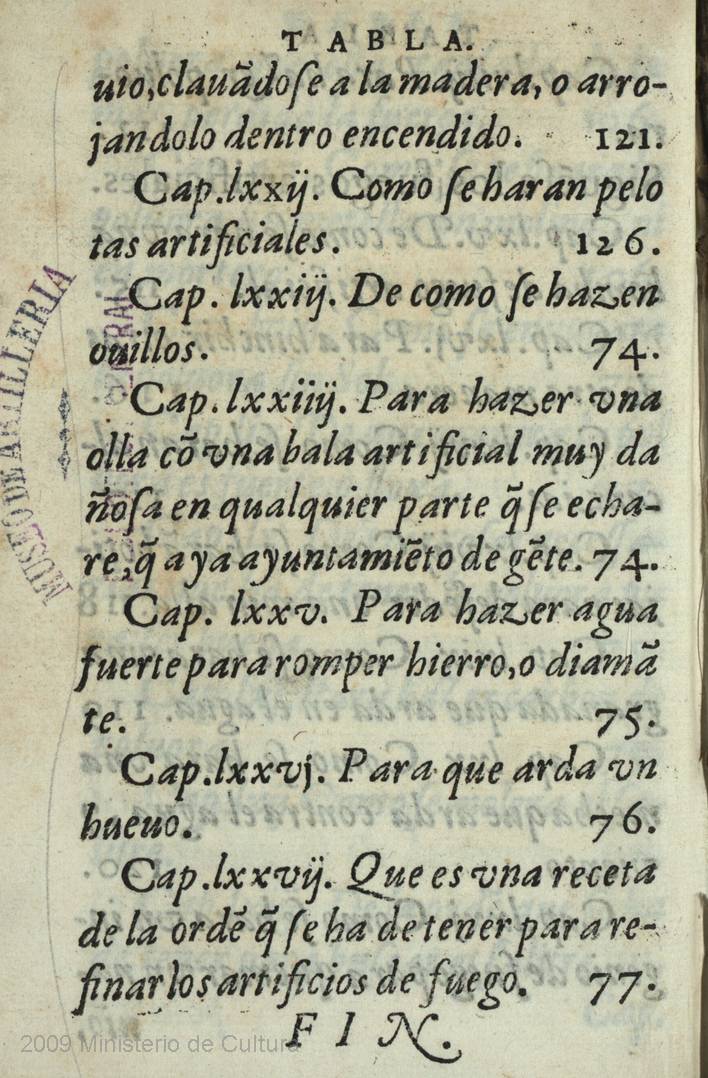 TABLA.
uio,clauādoſe a la madera, o arro-
jandolo dentro encendido. 121.
Cap.lxxij. Como ſe haran pelo
tas artificiales. 126.
Cap. lxxiij. De como ſe hazen
ouillos. 74.
Cap. lxxiiij. Para hazer vna
olla cō vna bala artificial muy da
ñoſa en qualquier parte q̄ ſe echa-
re,q̄ aya ayuntamiēto de gēte. 74.
Cap. lxxv. Para hazer agua
fuerte para romper hierro,o diamā
te. 75.
Cap.lxxvj. Para que arda vn
hueuo. 76.
Cap.lxxvij. Que es vna receta
de la ordē q̄ ſe ha de tener para re-
finar los artificios de fuego. 77.
FIN.
MUSEO DE ARTILLERIA
2009 Ministerio de Cultura